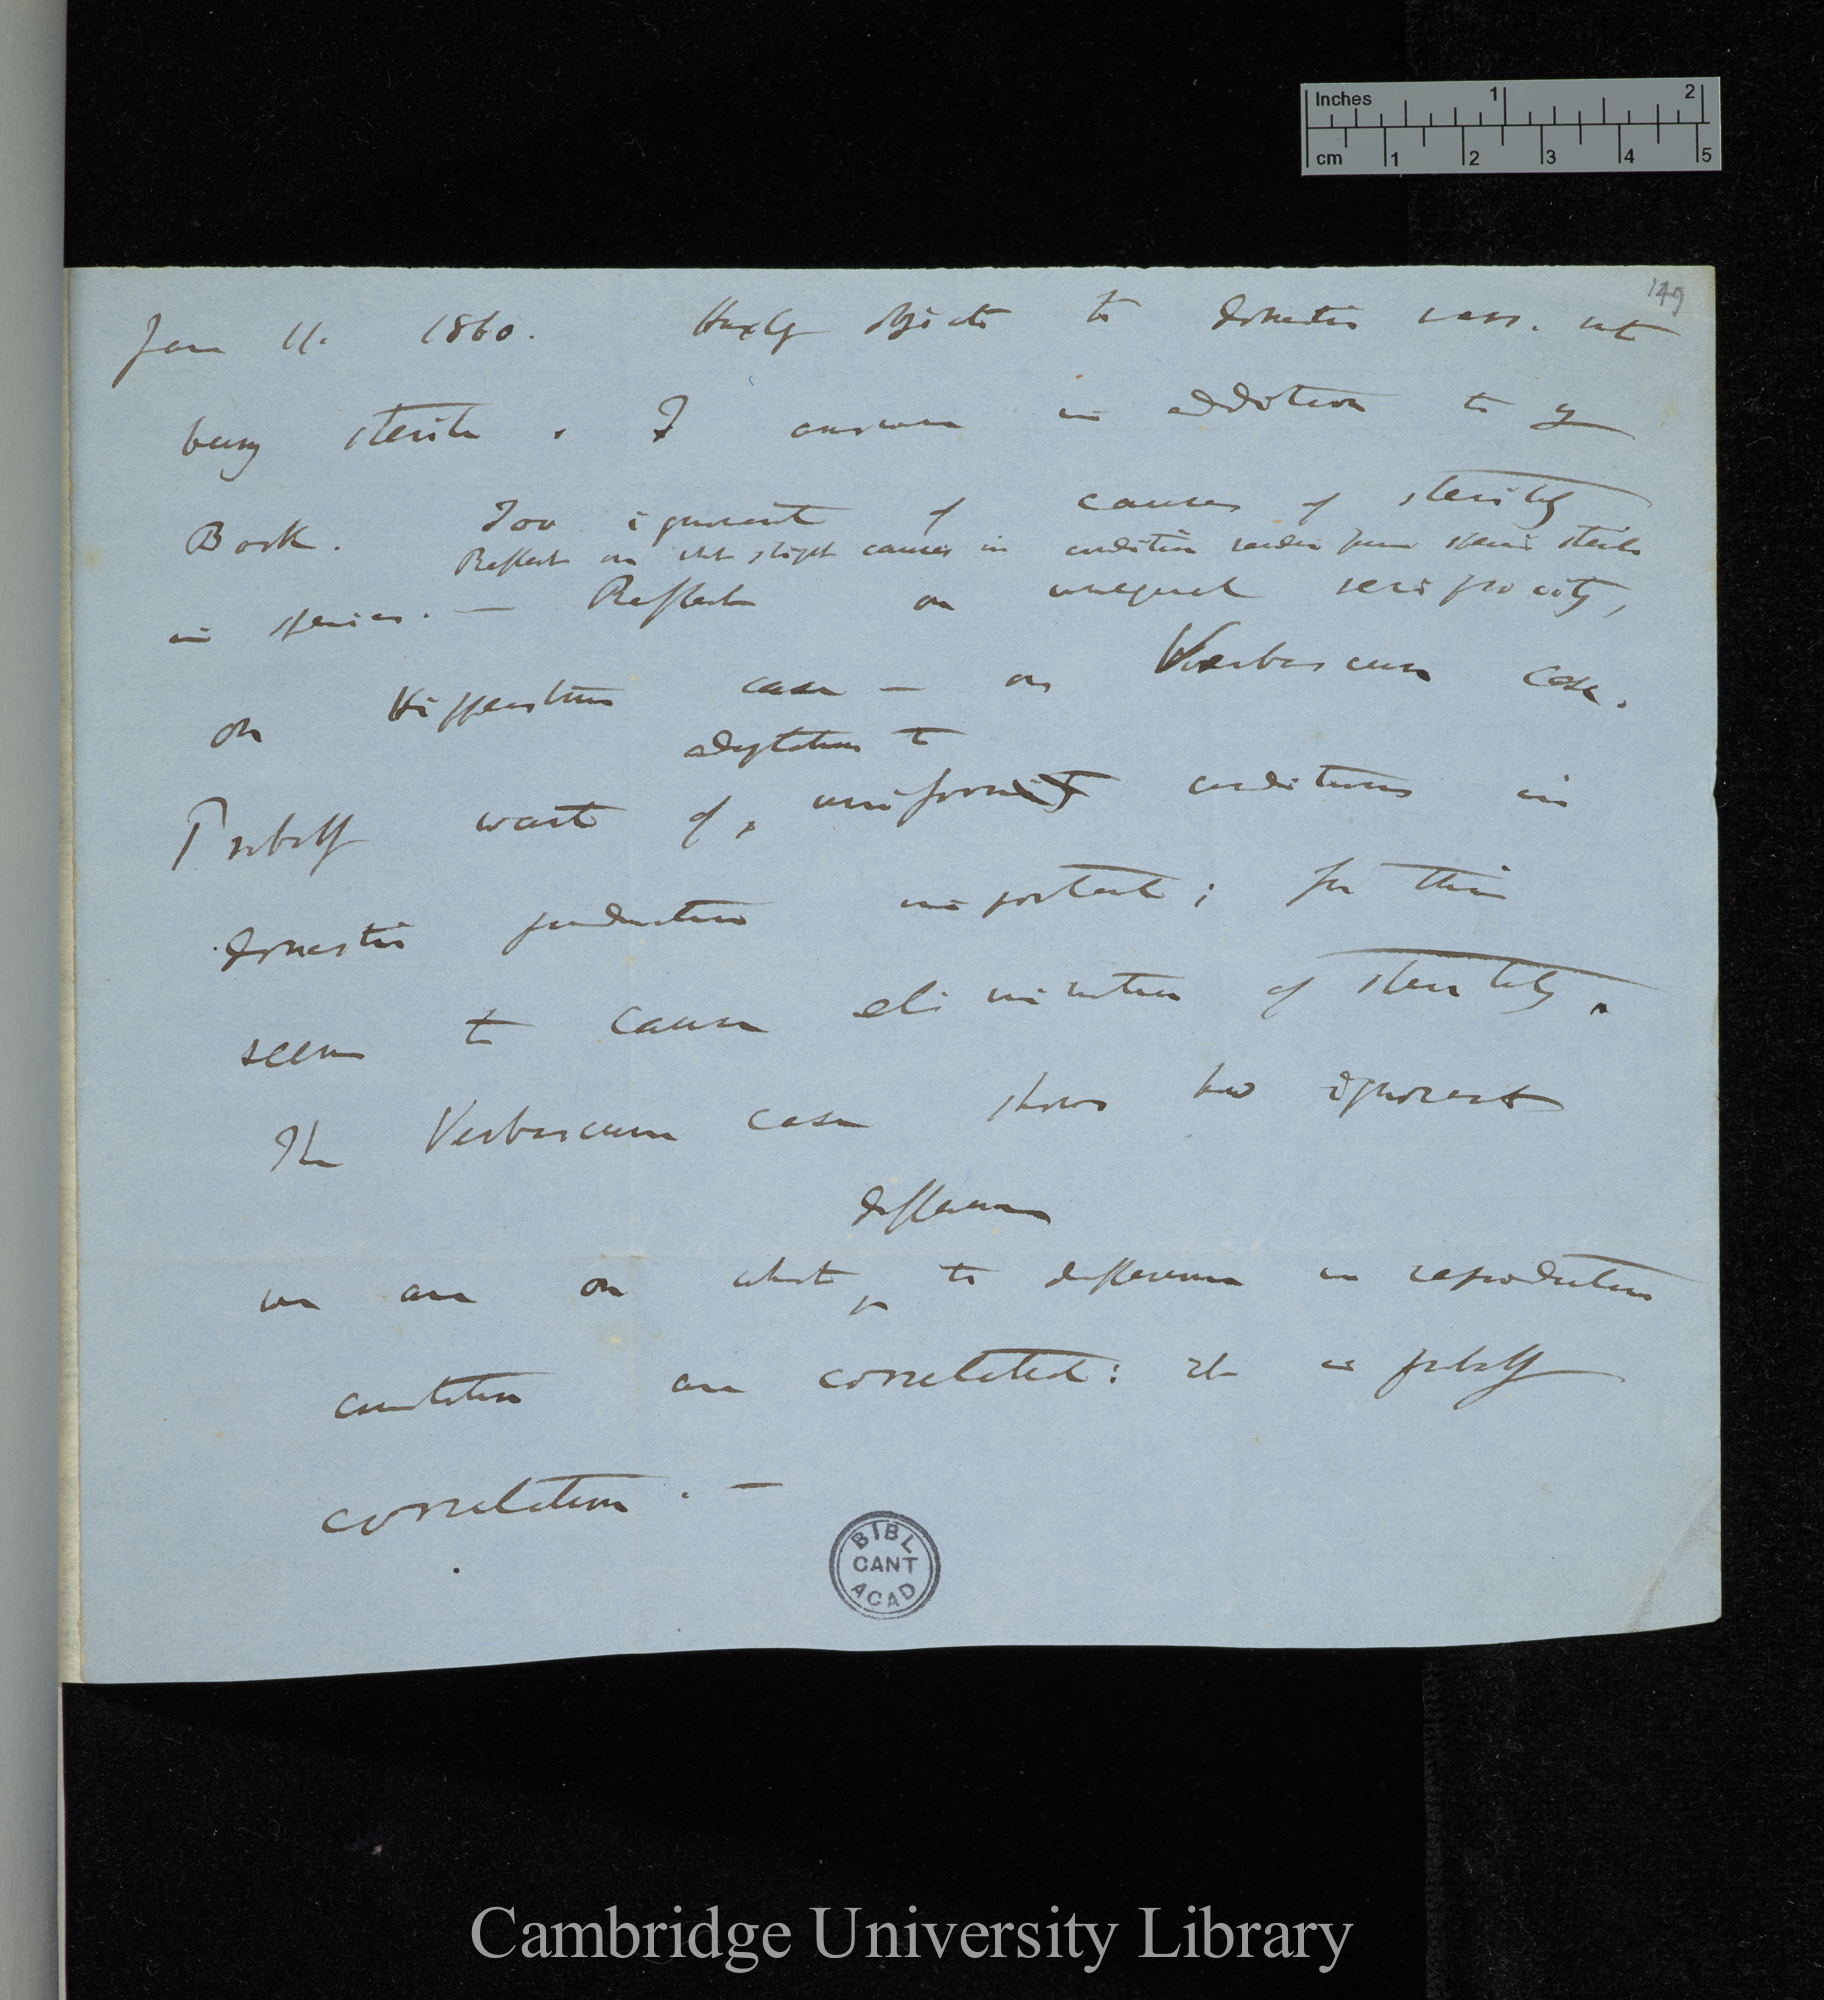 149
Jan 11. 1860. Huxley objects to domestic vars. not
being sterile. I answer in addition to my
Book. Too ignorant of causes of sterility
Reflect on what slight causes in condition render pure species sterile
in species. — Reflect on unequal reciprocity,
on Hippeastrum case — on Verbascum case.
adaptation to
Probably want of uniform conditions in
domestic productions important; for this
seems to cause elimination of sterility.
The Verbascum case shows how ignorant
differences
we are on what to differences in reproductive
constitution are correlated: it is probably
correlation. —
BIBL
CANT
ACAD
Inches 1 2
cm 1 2 3 4 5
Cambridge University Library